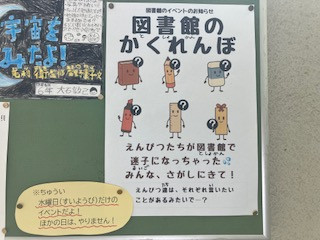 宇宙を
みたよ!
図書館のイベントのお知らせ
図書館の
かくれんぼ
えんぴつたちが図書館で
としょかん
迷子になっちゃった
まいご
みんな、さがしにきて!
えんぴつ達は、それぞれ言いたい
ことがあるみたいで…?
※ちゅうい
水曜日(すいようび)だけの
イベントだよ!
ほかの日は、やりません!